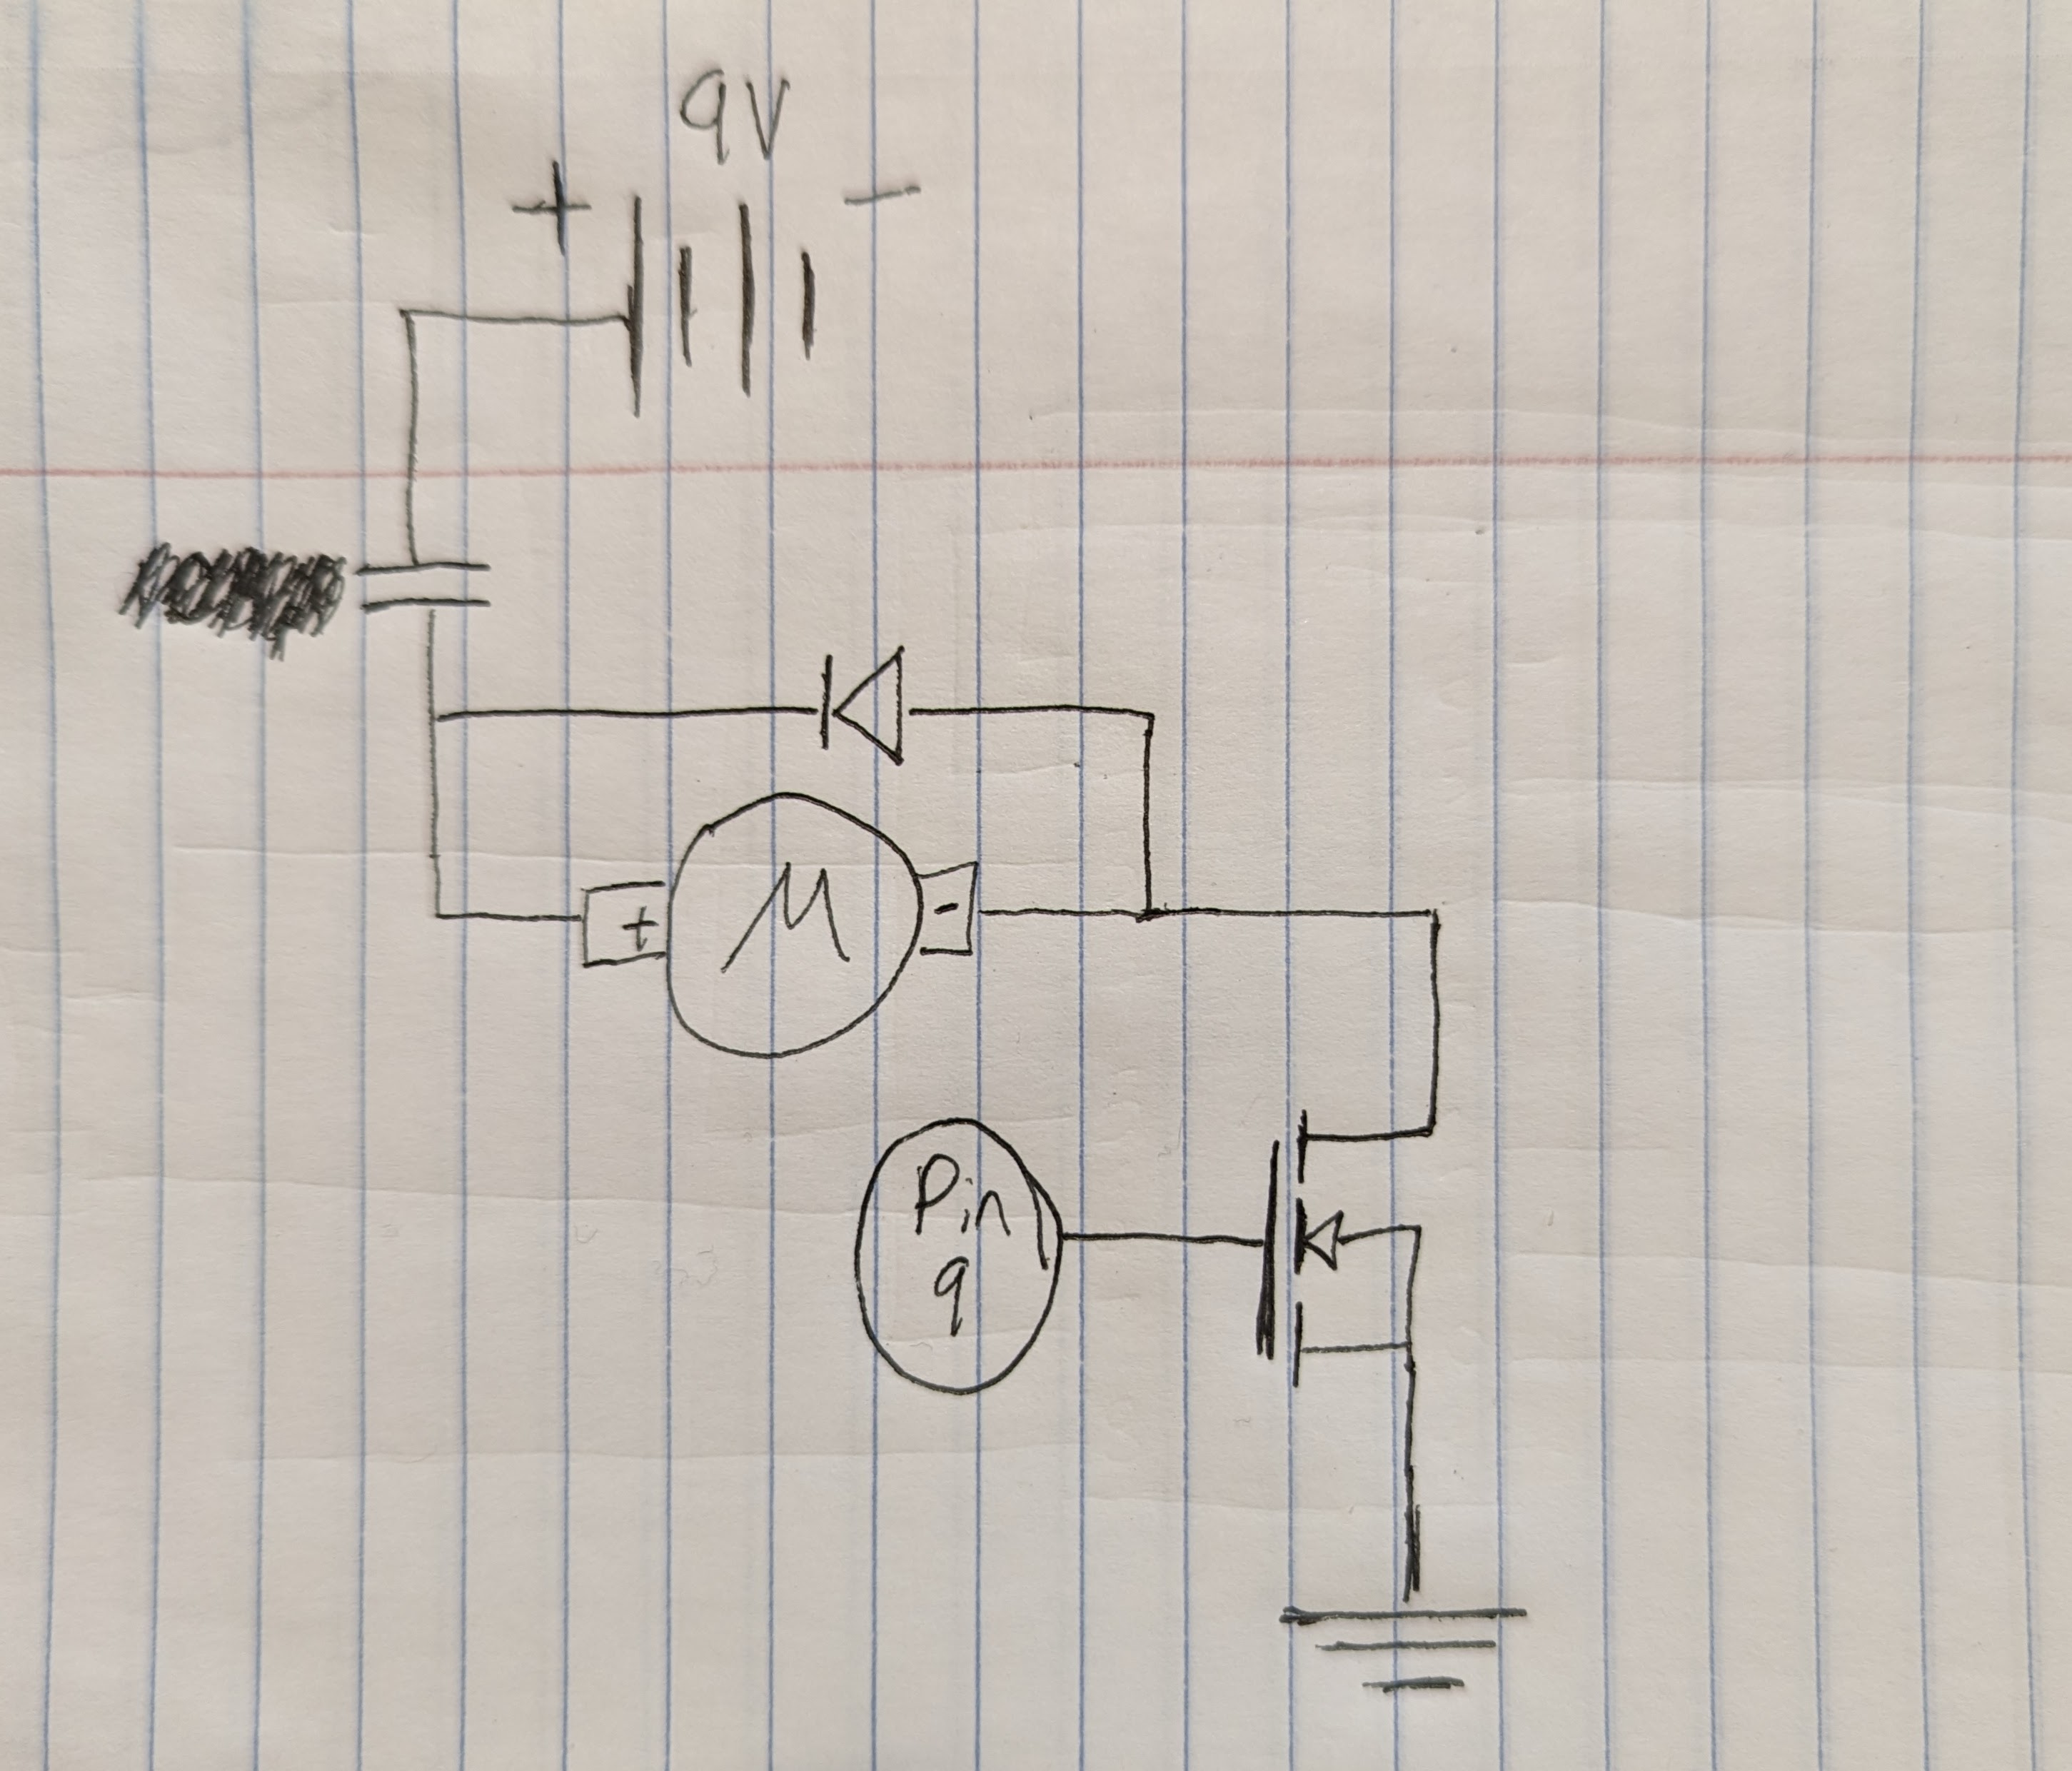 9V
+ -
+ M -
Pin
9